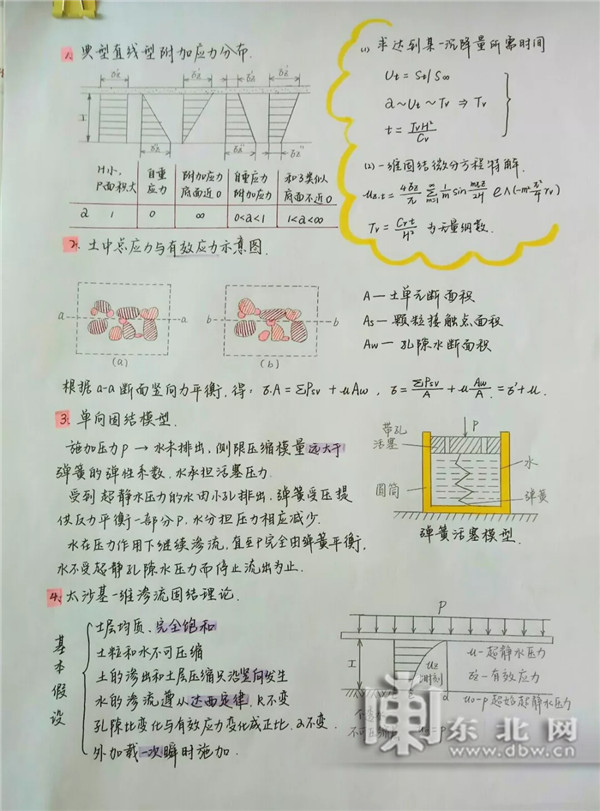 1. 典型直线型附加应力分布.
H小, P面积大
自重应力
附加应力底面近0
自重应力附加应力
和3类似底面不近0
a 1 0 ∞ 0<a<1 1<a<∞
(1) 求达到某一沉降量所需时间
Ut = St/S∞
a ~ Ut ~ Tv ⇒ Tv
t = TvH²/Cv
(2) 一维固结微分方程特解.
Tv = Cvt/H² 为无量纲数.
2. 土中总应力与有效应力示意图.
a a
(a)
b b
(b)
A — 土单元断面积
As — 颗粒接触点面积
Aw — 孔隙水断面积
根据a-a断面竖向力平衡, 得: σA = ΣPsv + uAw, σ = ΣPsv/A + u Aw/A = σ' + u.
3. 单向固结模型.
施加压力P → 水未排出, 侧限压缩模量远大于
弹簧的弹性系数. 水承担活塞压力.
受到超静水压力的水由小孔排出. 弹簧受压提
供反力平衡一部分P. 水分担压力相应减少.
水在压力作用下继续渗流, 直至P完全由弹簧平衡,
水不受超静孔隙水压力而停止流出为止.
P
带孔活塞
水
圆筒
弹簧
弹簧活塞模型.
4. 太沙基一维渗流固结理论.
基本假设
土层均质. 完全饱和
土粒和水不可压缩
土的渗出和土层压缩只沿竖向发生
水的渗流遵从达西定律, K不变
孔隙比变化与有效应力变化成正比. a不变.
外加载一次瞬时施加.
P
H
u - 超静水压力
σz - 有效应力
u0 - p 超始超静水压力
东北网
www.dbw.cn